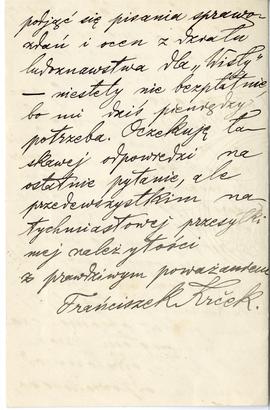 podjąć się pisania sprawo-
zdań i ocen z działu
ludoznawstwa dla „Wisły"
— niestety nie bezpłatnie
bo mi dziś pieniędzy
potrzeba. Oczekuję ła-
skawej odpowiedzi na
ostatnie pytanie, ale
przedewszystkiem na-
tychmiastowej przesyłki
mej należytości
z prawdziwym poważaniem
Franciszek Krček.